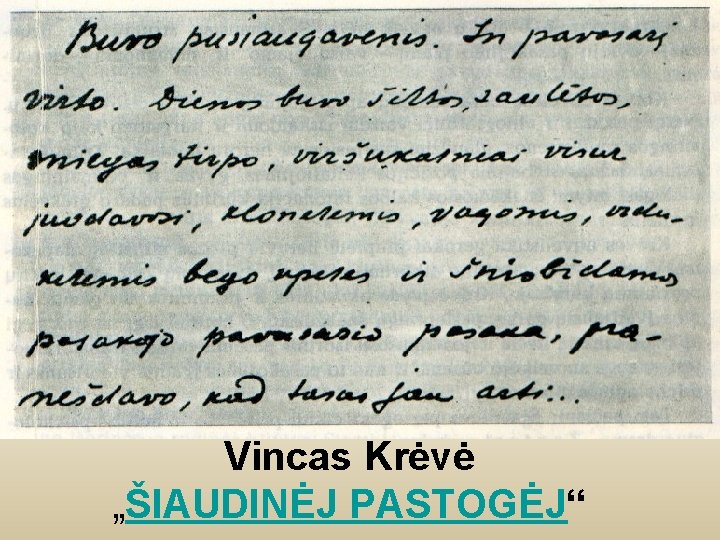 Buvo pusiaugavenis. In pavasarį
virto. Dienos buvo šiltos, saulėtos,
sniegas tirpo, viršukalniai visur
juodavosi, kloneliemis, vagomis, vidu-
keliemis bėgo upelės ir šniobždamos
pasakojo pavasario pasaką, pra-
nešdavo, kad vasaris jau arti...
Vincas Krėvė
„ŠIAUDINĖJ PASTOGĖJ“